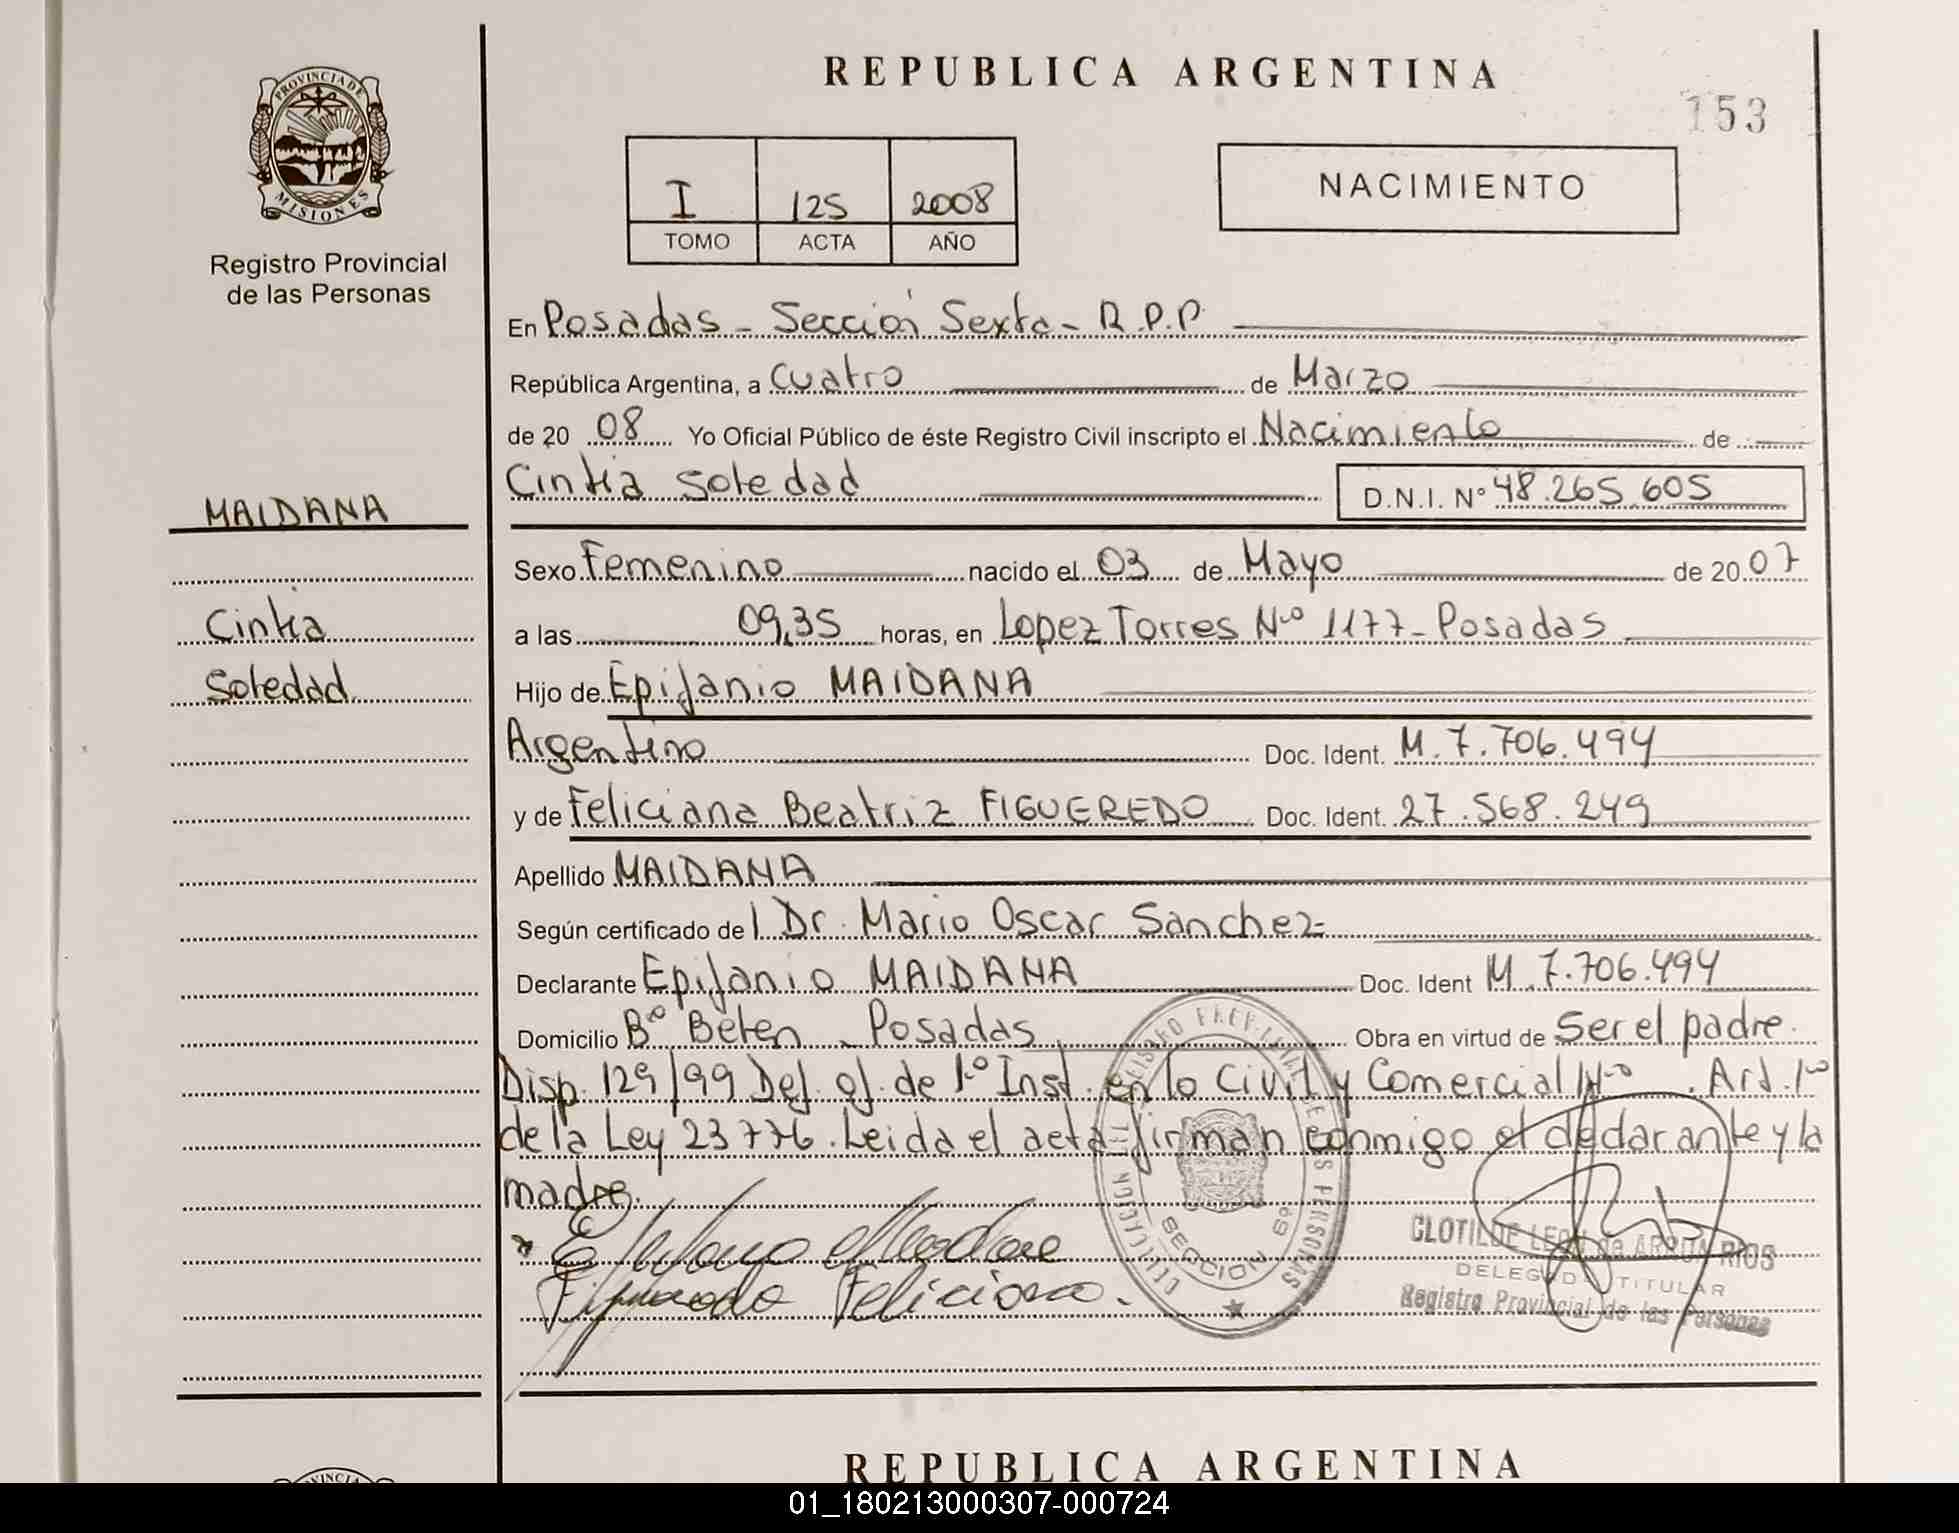 REPUBLICA ARGENTINA
153
PROVINCIA DE
MISIONES
Registro Provincial
de las Personas
I 125 2008
TOMO ACTA AÑO
NACIMIENTO
En Posadas - Sección Sexta - R.P.P.
República Argentina, a Cuatro de Marzo
de 20 08 Yo Oficial Público de éste Registro Civil inscripto el Nacimiento de
Cintia Soledad D.N.I. N° 48.265.605
MAIDANA
Sexo Femenino nacido el 03 de Mayo de 20 07
Cintia
a las 09,35 horas, en Lopez Torres Nº 1177 - Posadas
Soledad
Hijo de Epifanio MAIDANA
Argentino Doc. Ident. M. 7.706.494
y de Feliciana Beatriz FIGUEREDO Doc. Ident. 27.568.249
Apellido MAIDANA
Según certificado del Dr. Mario Oscar Sanchez
Declarante Epifanio MAIDANA Doc. Ident M. 7.706.494
Domicilio Bº Belen - Posadas Obra en virtud de Ser el padre.
Disp. 129/99 Def. of. de 1º Inst. en lo Civil y Comercial Nº . Art. 1º
de la Ley 23776. Leida el acta firman conmigo el declarante y la
madre.
Figueredo Feliciana.
SECCION 6ª
CLOTILDE LEON de ARRUA RIOS
DELEGADA TITULAR
Registro Provincial de las Personas
REPUBLICA ARGENTINA
01_180213000307-000724